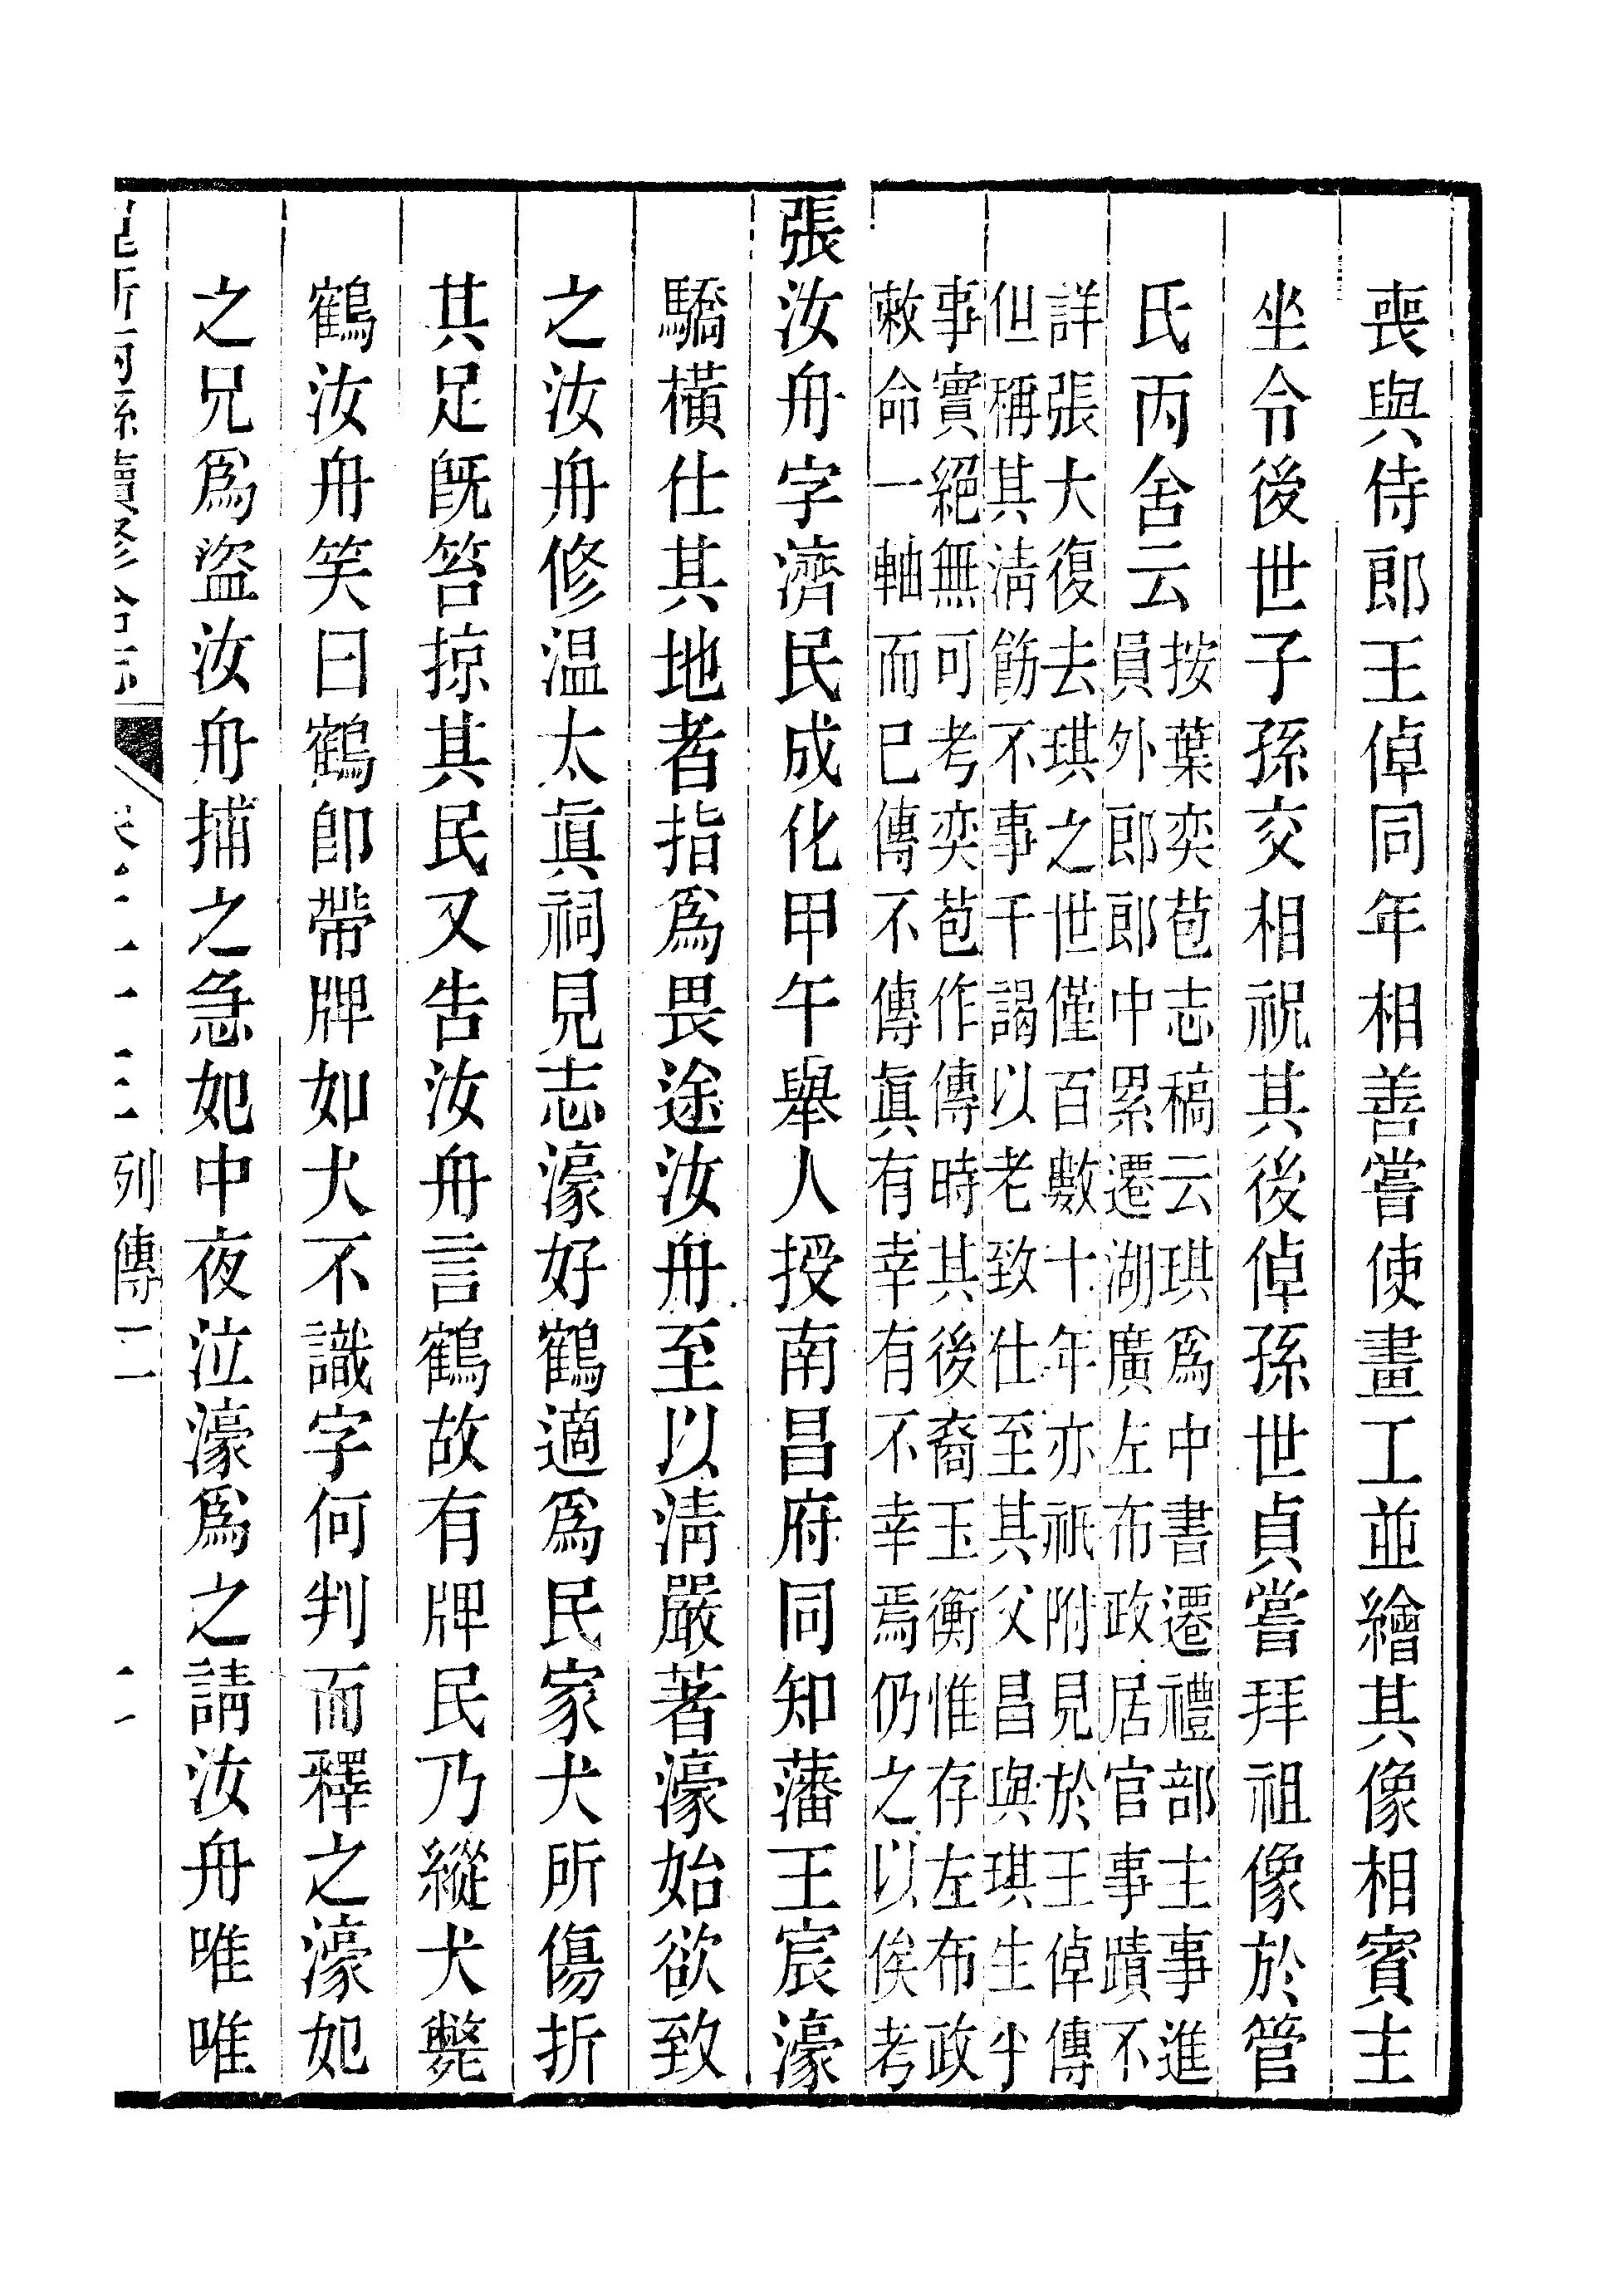 喪與侍郎王倬同年相善嘗使畫工並繪其像相賓主
坐令後世子孫交相祝其後倬孫世貞嘗拜祖像於管
氏丙舍云
按葉奕苞志稿云琪爲中書遷禮部主事進
員外郎郎中累遷湖廣左布政居官事蹟不
詳張大復去琪之世僅百數十年亦祇附見於王倬傳
但稱其淸飭不事干謁以老致仕至其父昌與琪生平
事實絕無可考奕苞作傳時其後裔玉衡惟存左布政
敕命一軸而已傳不傳眞有幸有不幸焉仍之以俟考
張汝舟字濟民成化甲午舉人授南昌府同知藩王宸濠
驕橫仕其地者指爲畏途汝舟至以淸嚴著濠始欲致
之汝舟修温太眞祠見志濠好鶴適爲民家犬所傷折
其足旣笞掠其民又告汝舟言鶴故有牌民乃縱犬斃
鶴汝舟笑曰鶴卽帶牌如犬不識字何判而釋之濠妃
之兄爲盜汝舟捕之急妃中夜泣濠爲之請汝舟唯唯
列傳二